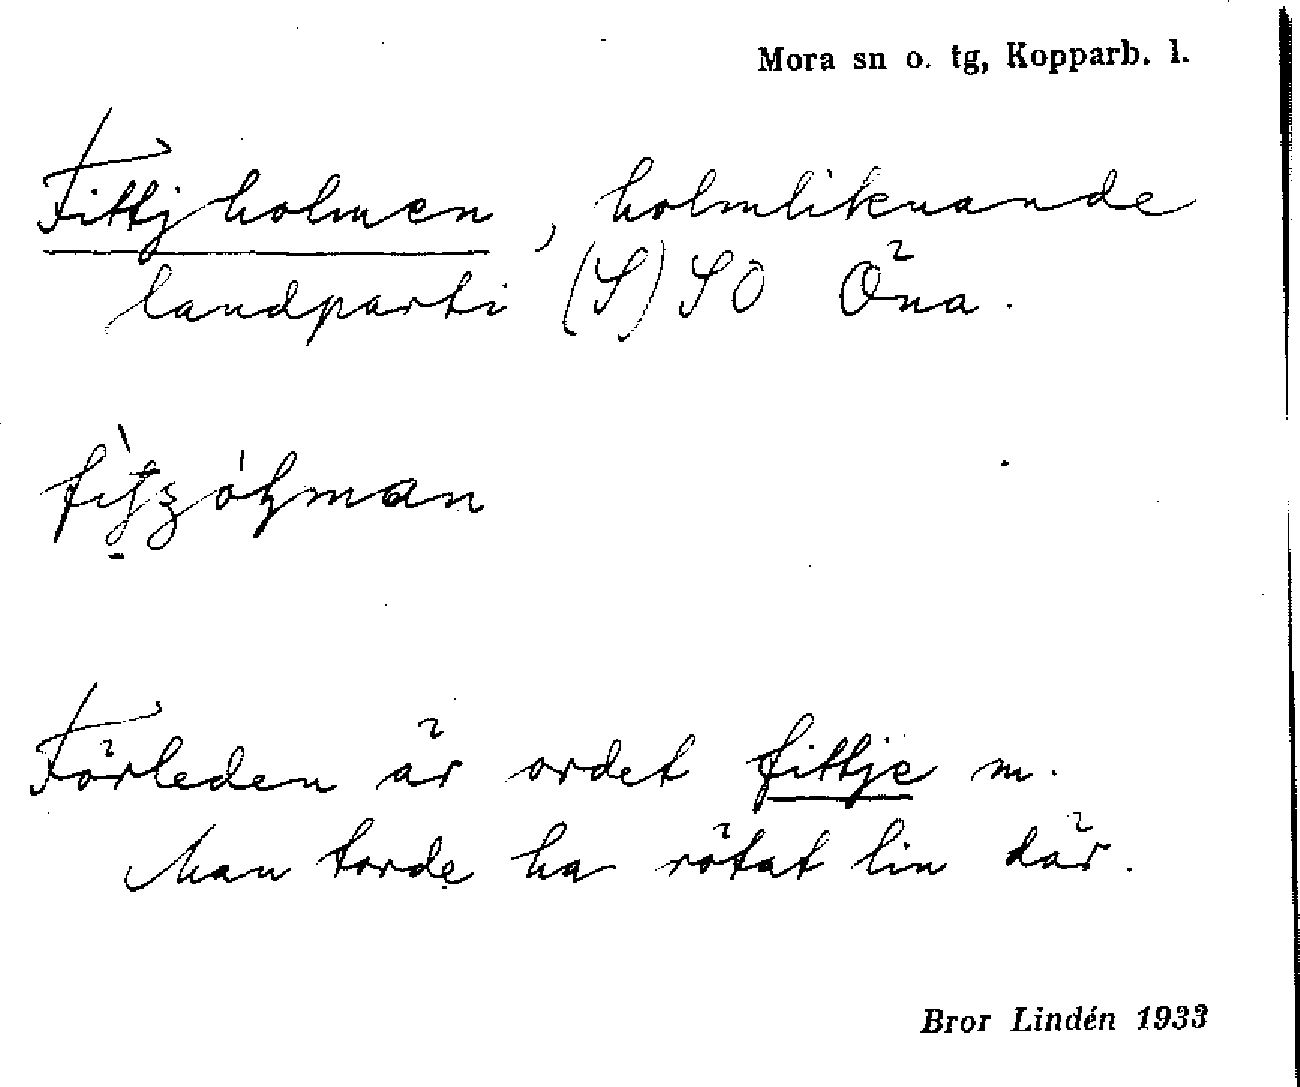 Mora sn o. tg, Kopparb. l.
Fittjholmen, holmliknande
landparti (S) SO Öna.
Förleden är ordet fittje m.
Man torde ha rötat lin där.
Bror Lindén 1933